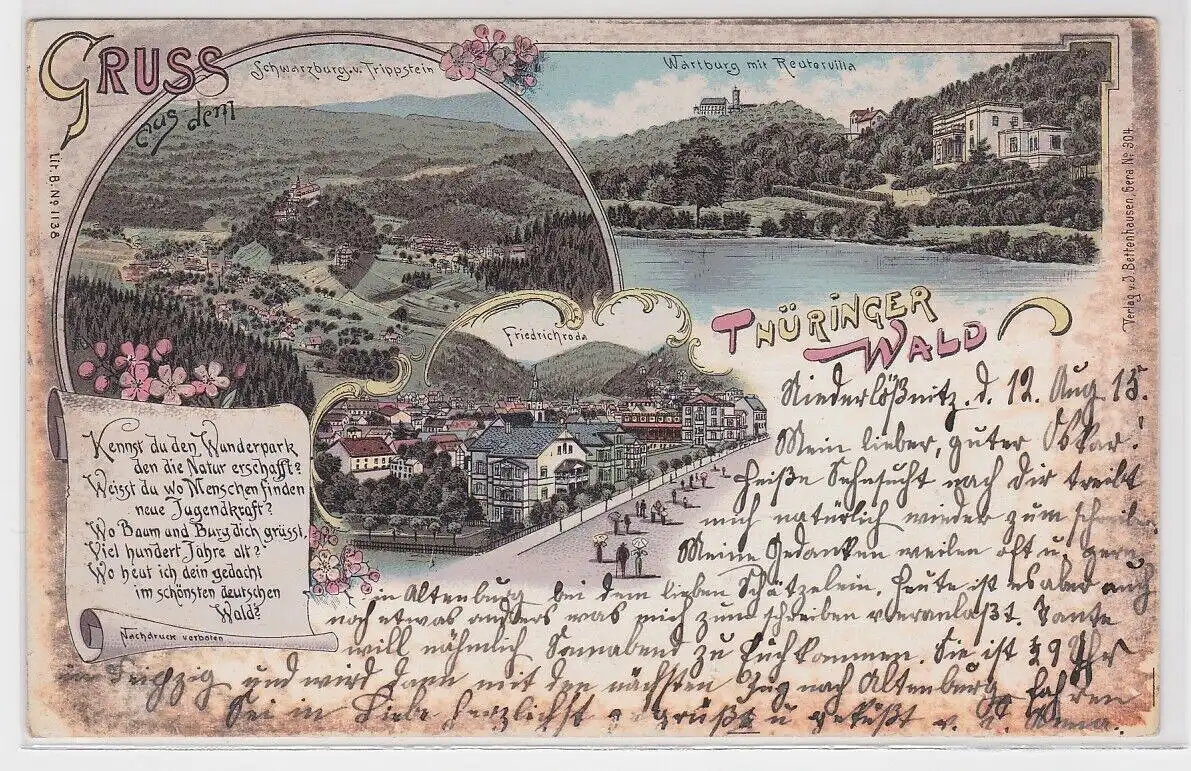 GRUSS
aus dem
Schwarzburg u. Trippstein
Wartburg mit Reutervilla
Lit. B. No 1136
Verlag v. O. Bettenhausen, Gera No 304
Friedrichroda
THÜRINGER
WALD
Kennst du den Wunderpark
den die Natur erschafft?
Weisst du wo Menschen finden
neue Jugendkraft?
Wo Baum und Burg dich grüsst,
Viel hundert Jahre alt?
Wo heut ich dein gedacht
im schönsten deutschen
Wald?
Nachdruck verboten
Niederlößnitz d. 12. Aug 15.
Mein lieber, guter Oskar!
Heiße Sehnsucht nach dir treibt
mich natürlich wieder zum
Meine Gedanken weilen oft u. gern
in Altenburg bei dem lieben Schätzelein. Heute ist es aber auch
noch etwas anders was mich zum schreiben veranlaßt. Tante
will nähmlich Sonnabend zu Euch kommen. Sie ist 9 Uhr
in Leipzig und wird dann mit den nächsten Zug nach Altenburg fahren
Sei in Liebe herzlichst gegrüßt u geküßt v. Anna.